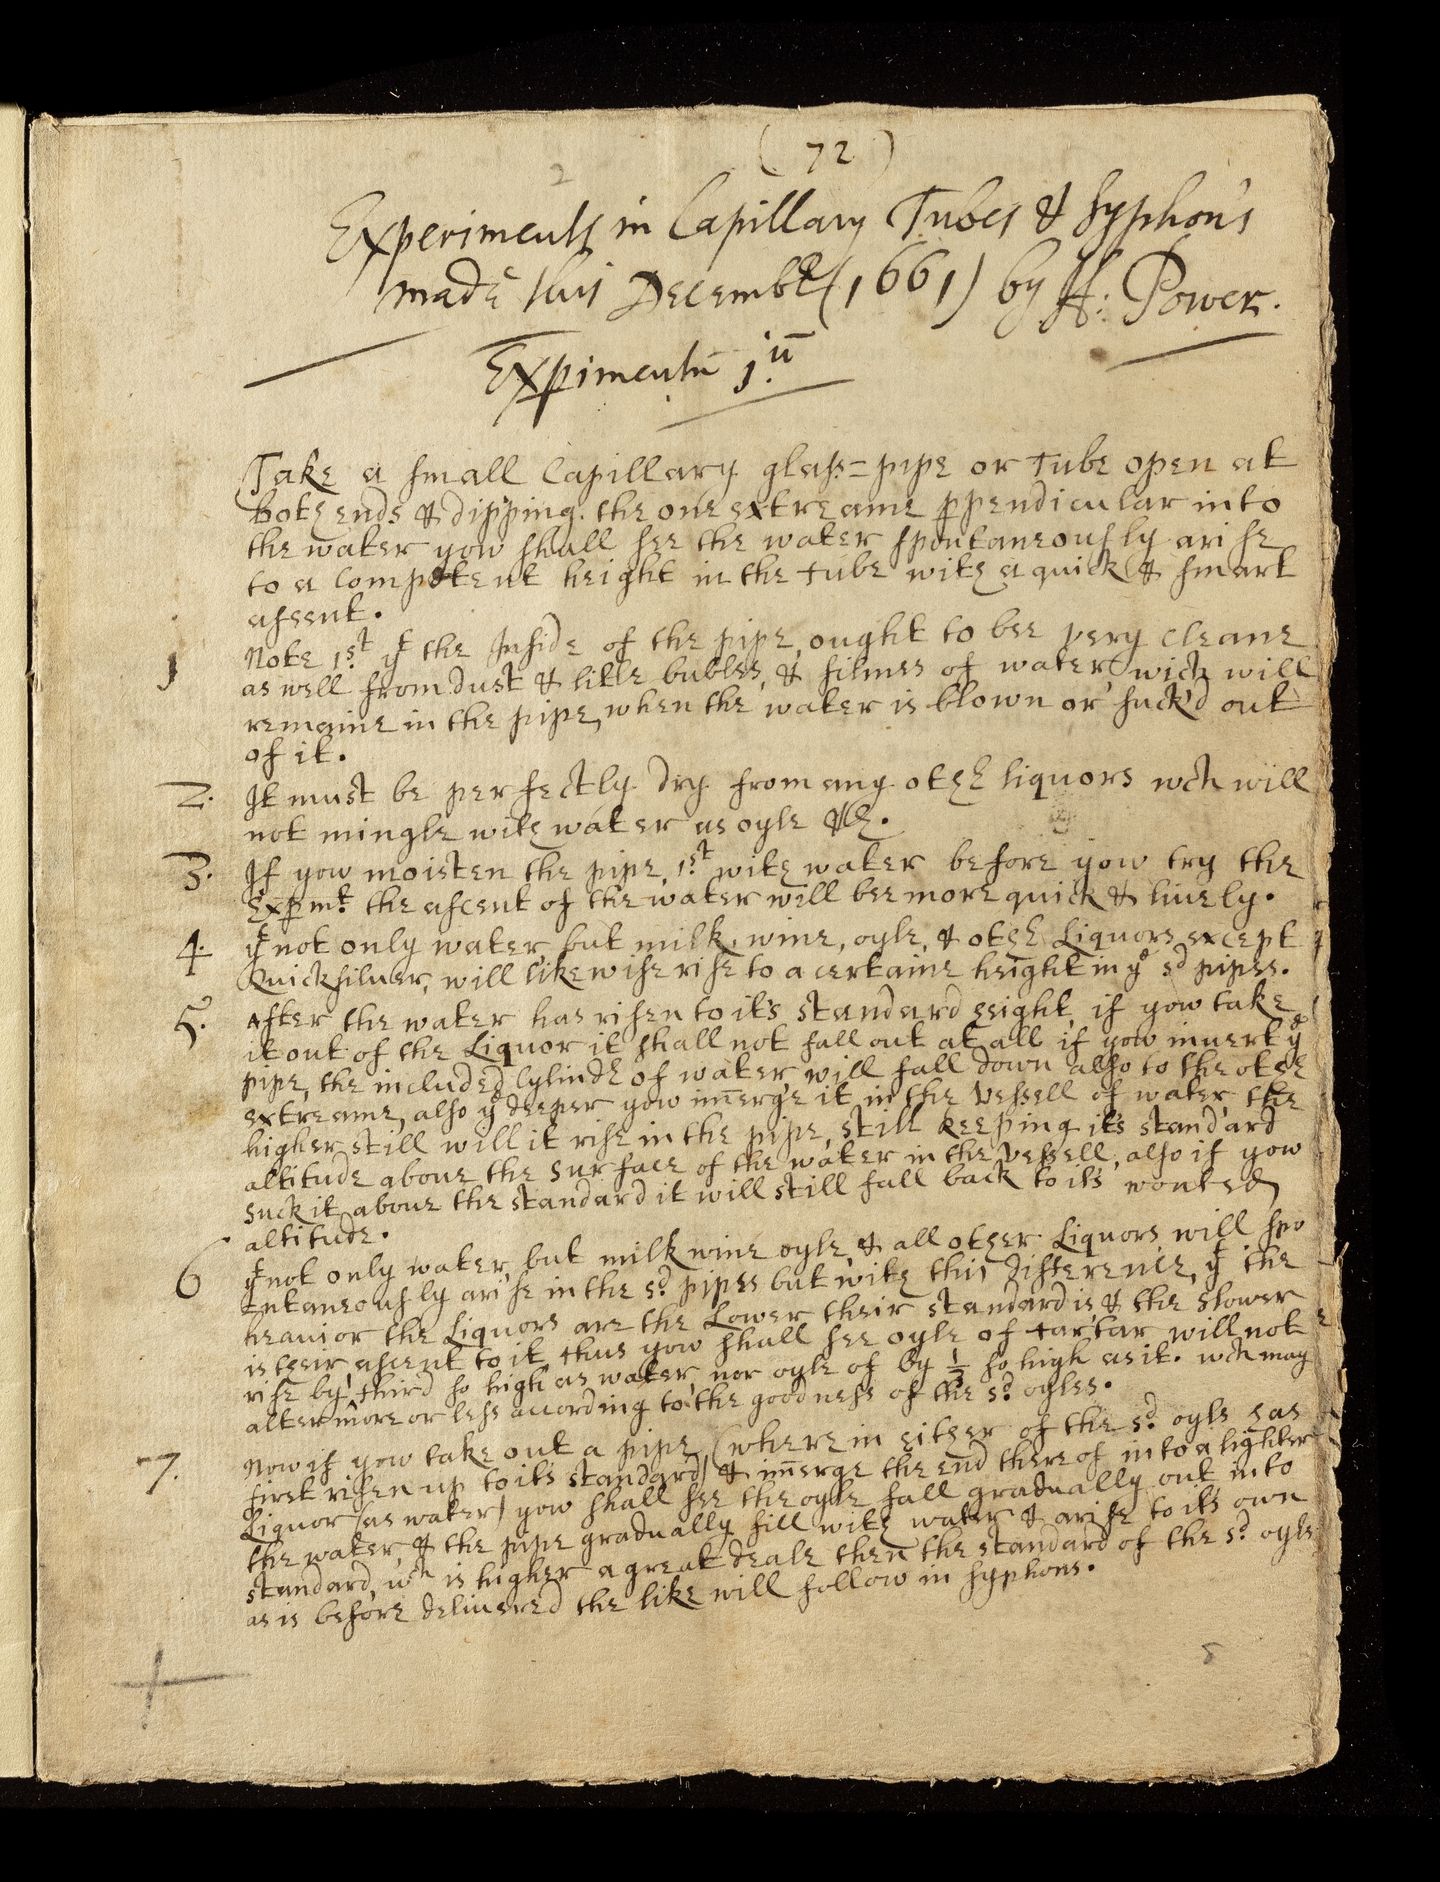 ( 72 )
2
Experiments in Capillary Tubes & Syphon's
made this Decembr (1661) by H: Power.
Expimentū 1.ū
Take a small Capillary glass=pipe or Tube open at
both ends & dipping the one extreame ppendicular into
the water yow shall see the water spontaneously arise
to a Competent height in the tube with a quick & smart
assent.
1 Note 1st yt the Inside of the pipe, ought to bee very cleane
as well from dust & litle bubles, & filmes of water wich will
remaine in the pipe, when the water is blown or suck'd out
of it.
2. It must be perfectly dry from any other liquors wch will
not mingle with water as oyle &c.
3. If yow moisten the pipe 1st with water before yow try the
Expmt. the ascent of the water will bee more quick & lively.
4. yt not only water but milk, wine, oyle, & other Liquors except
Quicksilver, will likewise rise to a certaine height in ye sd pipes.
5. After the water has risen to it's standard height, if yow take
it out of the Liquor it shall not fall out at all, if yow invert ye
pipe, the included Cylinder of water will fall down also to the other
extreame, also ye deeper yow im̄erge it in the Vessell of water, the
higher still will it rise in the pipe, still keeping it's standard
altitude above the surface of the water in the vessell, also if yow
suck it above the standard it will still fall back to it's wonted
altitude.
6 yt not only water, but milk wine oyle, & all other Liquors will spo
entaneously arise in the sd. pipes but with this difference, yt the
heavior the Liquors are the Lower their standard is & the slower
is their ascent to it, thus yow shall see oyle of tartar will not
rise by third so high as water, nor oyle of by ½ so high as it. wch may
alter more or less according to the goodness of the sd. oyles.
7. Now if yow take out a pipe, (wherein either of the sd. oyls has
first risen up to it's standard) & im̄erge the end thereof into a lighter
Liquor (as water) yow shall see the oyle fall gradually out into
the water, & the pipe gradually fill with water & arise to it's own
standard, wch is higher a great deale then the standard of the sd. oyls
as is before delivered the like will follow in syphons.